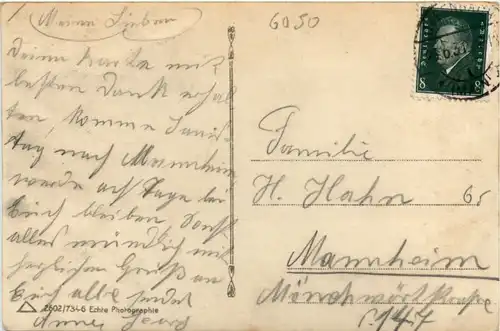 Meine Lieben
6050
Deine Karte mit
besten Dank erhal-
ten, komme Sams-
tag nach Mannheim
werde acht Tage bei
Euch bleiben Sonst
alles mündlich mit
herzlichen Gruß an
Euch alle sendet
Georg
2602/734-6 Echte Photographie
8 8
Familie
H. Hahn 65
Mannheim
Mönchwörthstraße
144